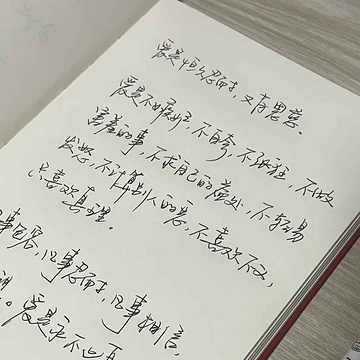 爱是恒久忍耐，又有恩慈。
爱是不嫉妒，不自夸，不张狂，不做
害羞的事，不求自己的益处，不轻易
发怒，不计算别人的恶，不喜欢不义，
只喜欢真理。
事包容，凡事忍耐，凡事相信，
爱是永不止息